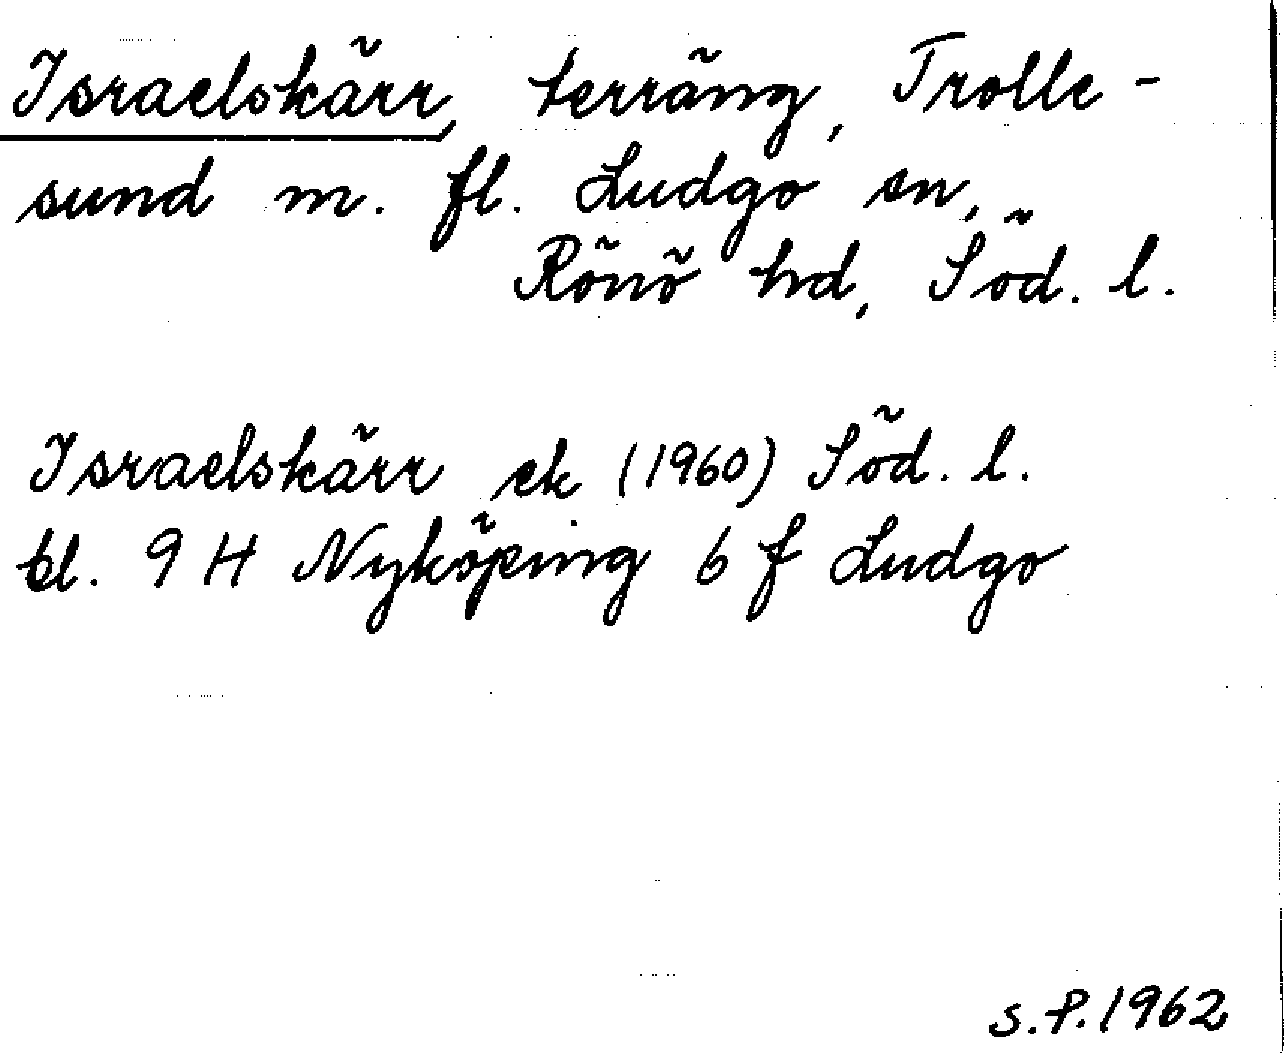 Israelskärr, terräng, Trolle-
sund m. fl. Ludgo sn,
Rönö hd, Söd. l.
Israelskärr ek (1960) Söd. l.
bl. 9 H Nyköping 6 f Ludgo
S.P. 1962